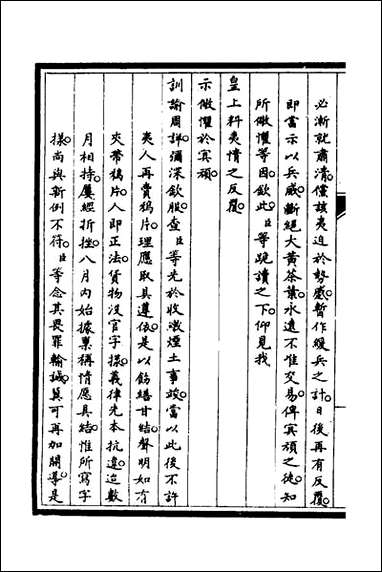 必漸就肅清儻該夷迫於勢蹙暫作緩兵之計日後再有反覆
即當示以兵威斷絕大黃茶葉永遠不准交易俾冥頑之徒知
所儆懼等因欽此臣等跪讀之下仰見我
皇上料夷情之反覆
示儆懼於冥頑
訓諭周詳彌深欽服查臣等先於收繳煙土事竣當以此後不許
夷人再賣鴉片理應取具遵依是以飭繕甘結聲明如有
夾帶鴉片人即正法貨物沒官字樣義律先本抗違迨數
月相持屢經折挫八月內始據稟稱情愿具結惟所寫字
樣尚與新例不符臣等念其畏罪輸誠冀可再加開導是